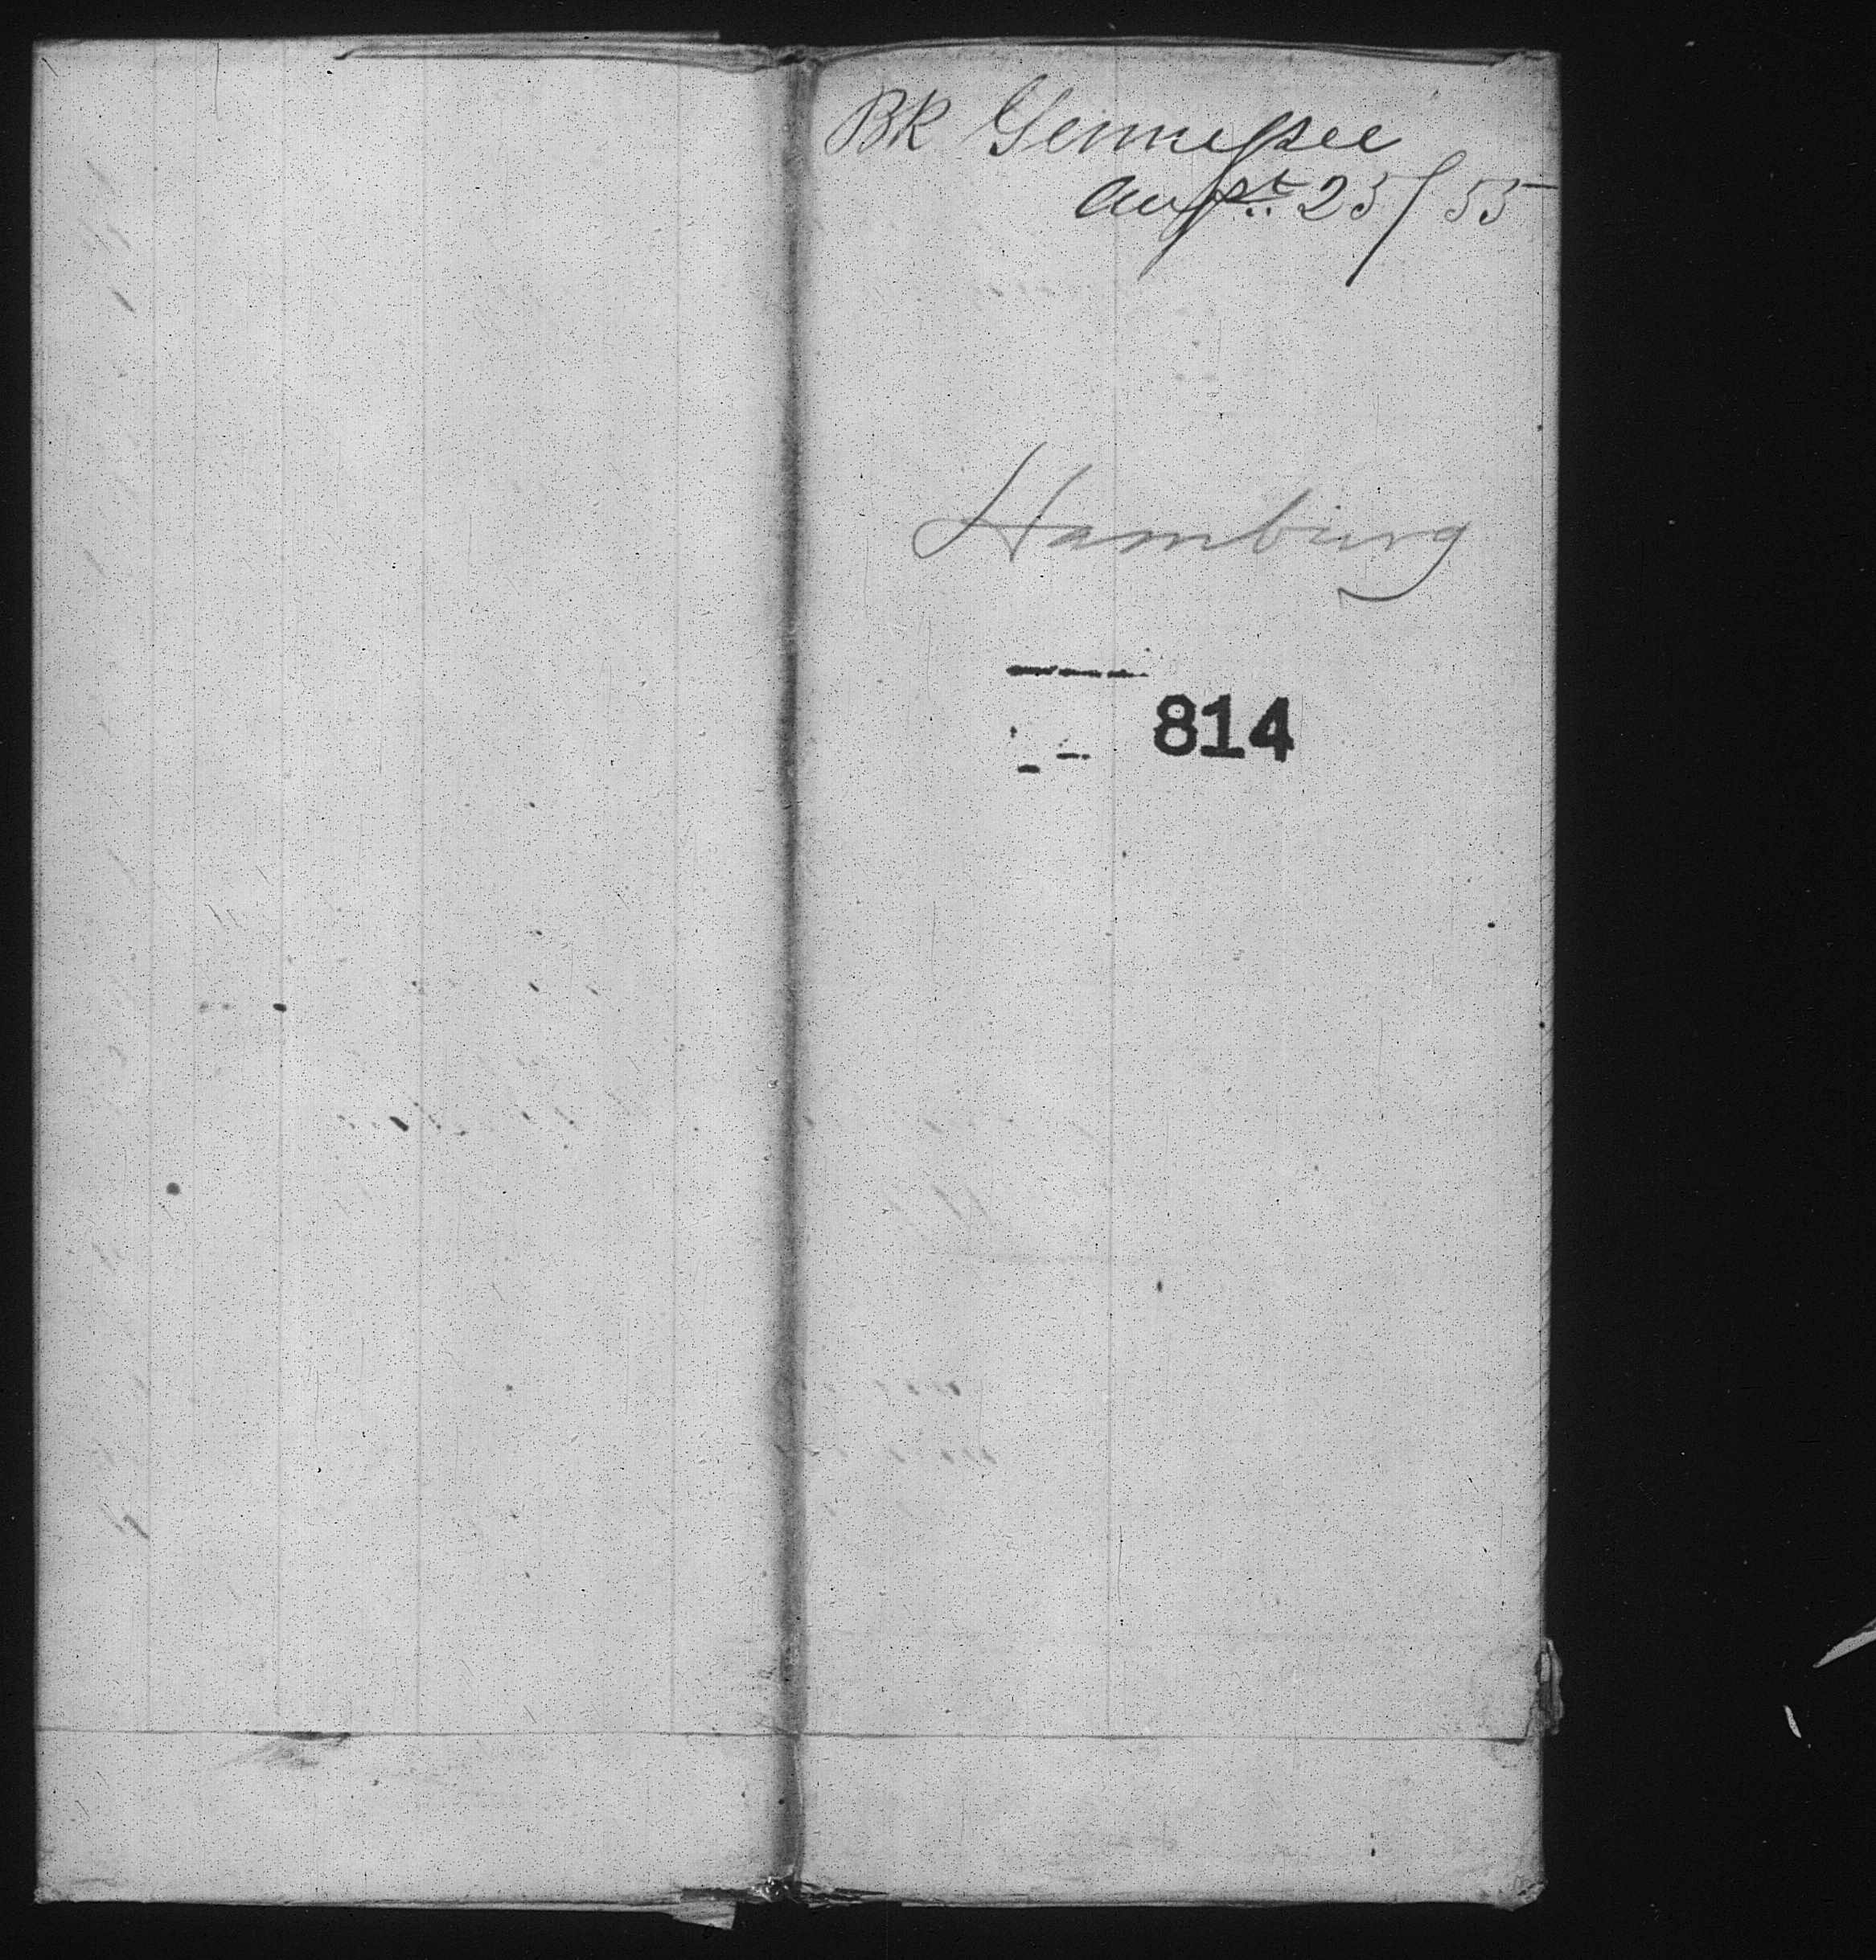 BK Gennessee
Augst 25/55
Hamburg
814